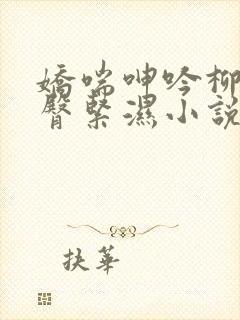 嬌喘呻吟柳
臀緊濕小說
抉華